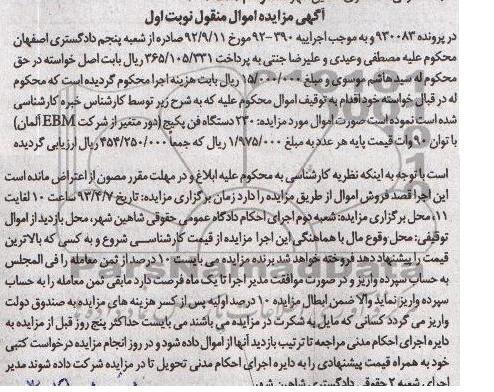 آگهی مزایده اموال منقول نوبت اول
در پرونده ۹۳۰۰۸۳ و به موجب اجراییه ۳۹۰-۹۲ مورخ ۹۲/۹/۱۱ صادره از شعبه پنجم دادگستری اصفهان
محکوم علیه مصطفی وعیدی و علیرضا جنتی به پرداخت ۳۶۵/۱۰۵/۳۳۱ ریال بابت اصل خواسته در حق
محکوم له سید هاشم موسوی و مبلغ ۱۵/۰۰۰/۰۰۰ ریال بابت هزینه اجرا محکوم گردیده است که محکوم
له در قبال خواسته خود اقدام به توقیف اموال محکوم علیه که به شرح زیر توسط کارشناس خبره کارشناسی
شده است نموده است صورت اموال مورد مزایده: ۲۳۰ دستگاه فن پکیج (دور متغیر از شرکت EBM آلمان)
با توان ۹۰ وات قیمت پایه هر عدد به مبلغ ۱/۹۷۵/۰۰۰ ریال که جمعاً ۴۵۴/۲۵۰/۰۰۰ ریال ارزیابی گردیده
است با توجه به اینکه نظریه کارشناسی به محکوم علیه ابلاغ و در مهلت مقرر مصون از اعتراض مانده است
این اجرا قصد فروش اموال از طریق مزایده را دارد زمان برگزاری مزایده: تاریخ ۹۳/۴/۷ ساعت ۱۰ لغایت
۱۱، محل برگزاری مزایده: شعبه دوم اجرای احکام دادگاه عمومی حقوقی شاهین شهر، محل بازدید از اموال
توقیفی: محل وقوع مال با هماهنگی این اجرا مزایده از قیمت کارشناسی شروع و به کسی که بالاترین
قیمت را پیشنهاد دهد فروخته خواهد شد برنده مزایده می بایست ۱۰ درصد از ثمن معامله را فی المجلس
به حساب سپرده واریز و در صورت موافقت مدیر اجرا تا یک ماه فرصت دارد مابقی ثمن معامله را به حساب
سپرده واریز نماید والا ضمن ابطال مزایده ۱۰ درصد اولیه پس از کسر هزینه های مزایده به صندوق دولت
واریز می گردد کسانی که مایل به شرکت در مزایده می باشند می بایست حداکثر پنج روز قبل از مزایده به
دایره اجرای احکام مدنی مراجعه تا ترتیب بازدید آنها از اموال داده شود و در روز انجام مزایده درخواست کتبی
خود به همراه قیمت پیشنهادی را به دایره اجرای احکام مدنی تحویل تا در مزایده شرکت داده شوند مدیر
اجرای شعبه ۲ حقوقی دادگستری شاهین شهر
ParsNamadData